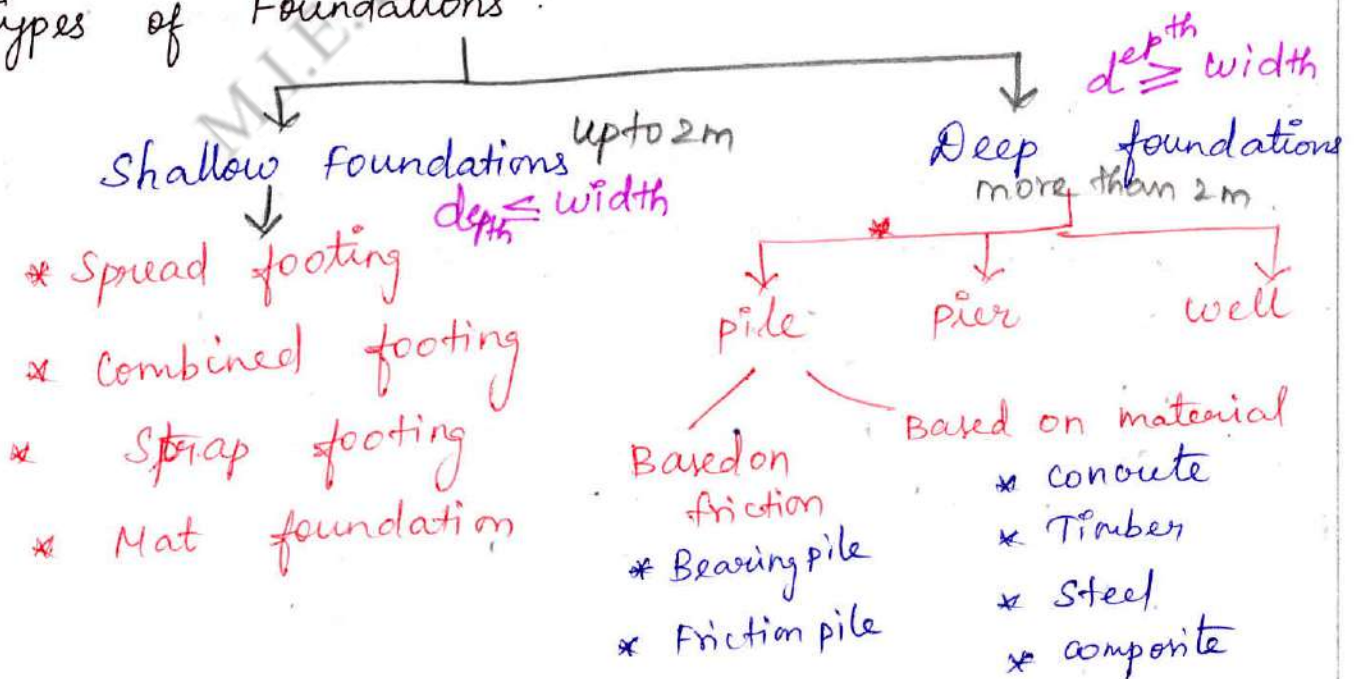 Types of Foundations :
M.I.E.
Shallow Foundations upto 2m
depth ≤ width
* Spread footing
* Combined footing
* Strap footing
* Mat foundation
depth ≥ width
Deep foundations
more than 2m.
*
pile
pier
well
Based on
friction
* Bearing pile
* Friction pile
Based on material
* concrete
* Timber
* Steel
* composite